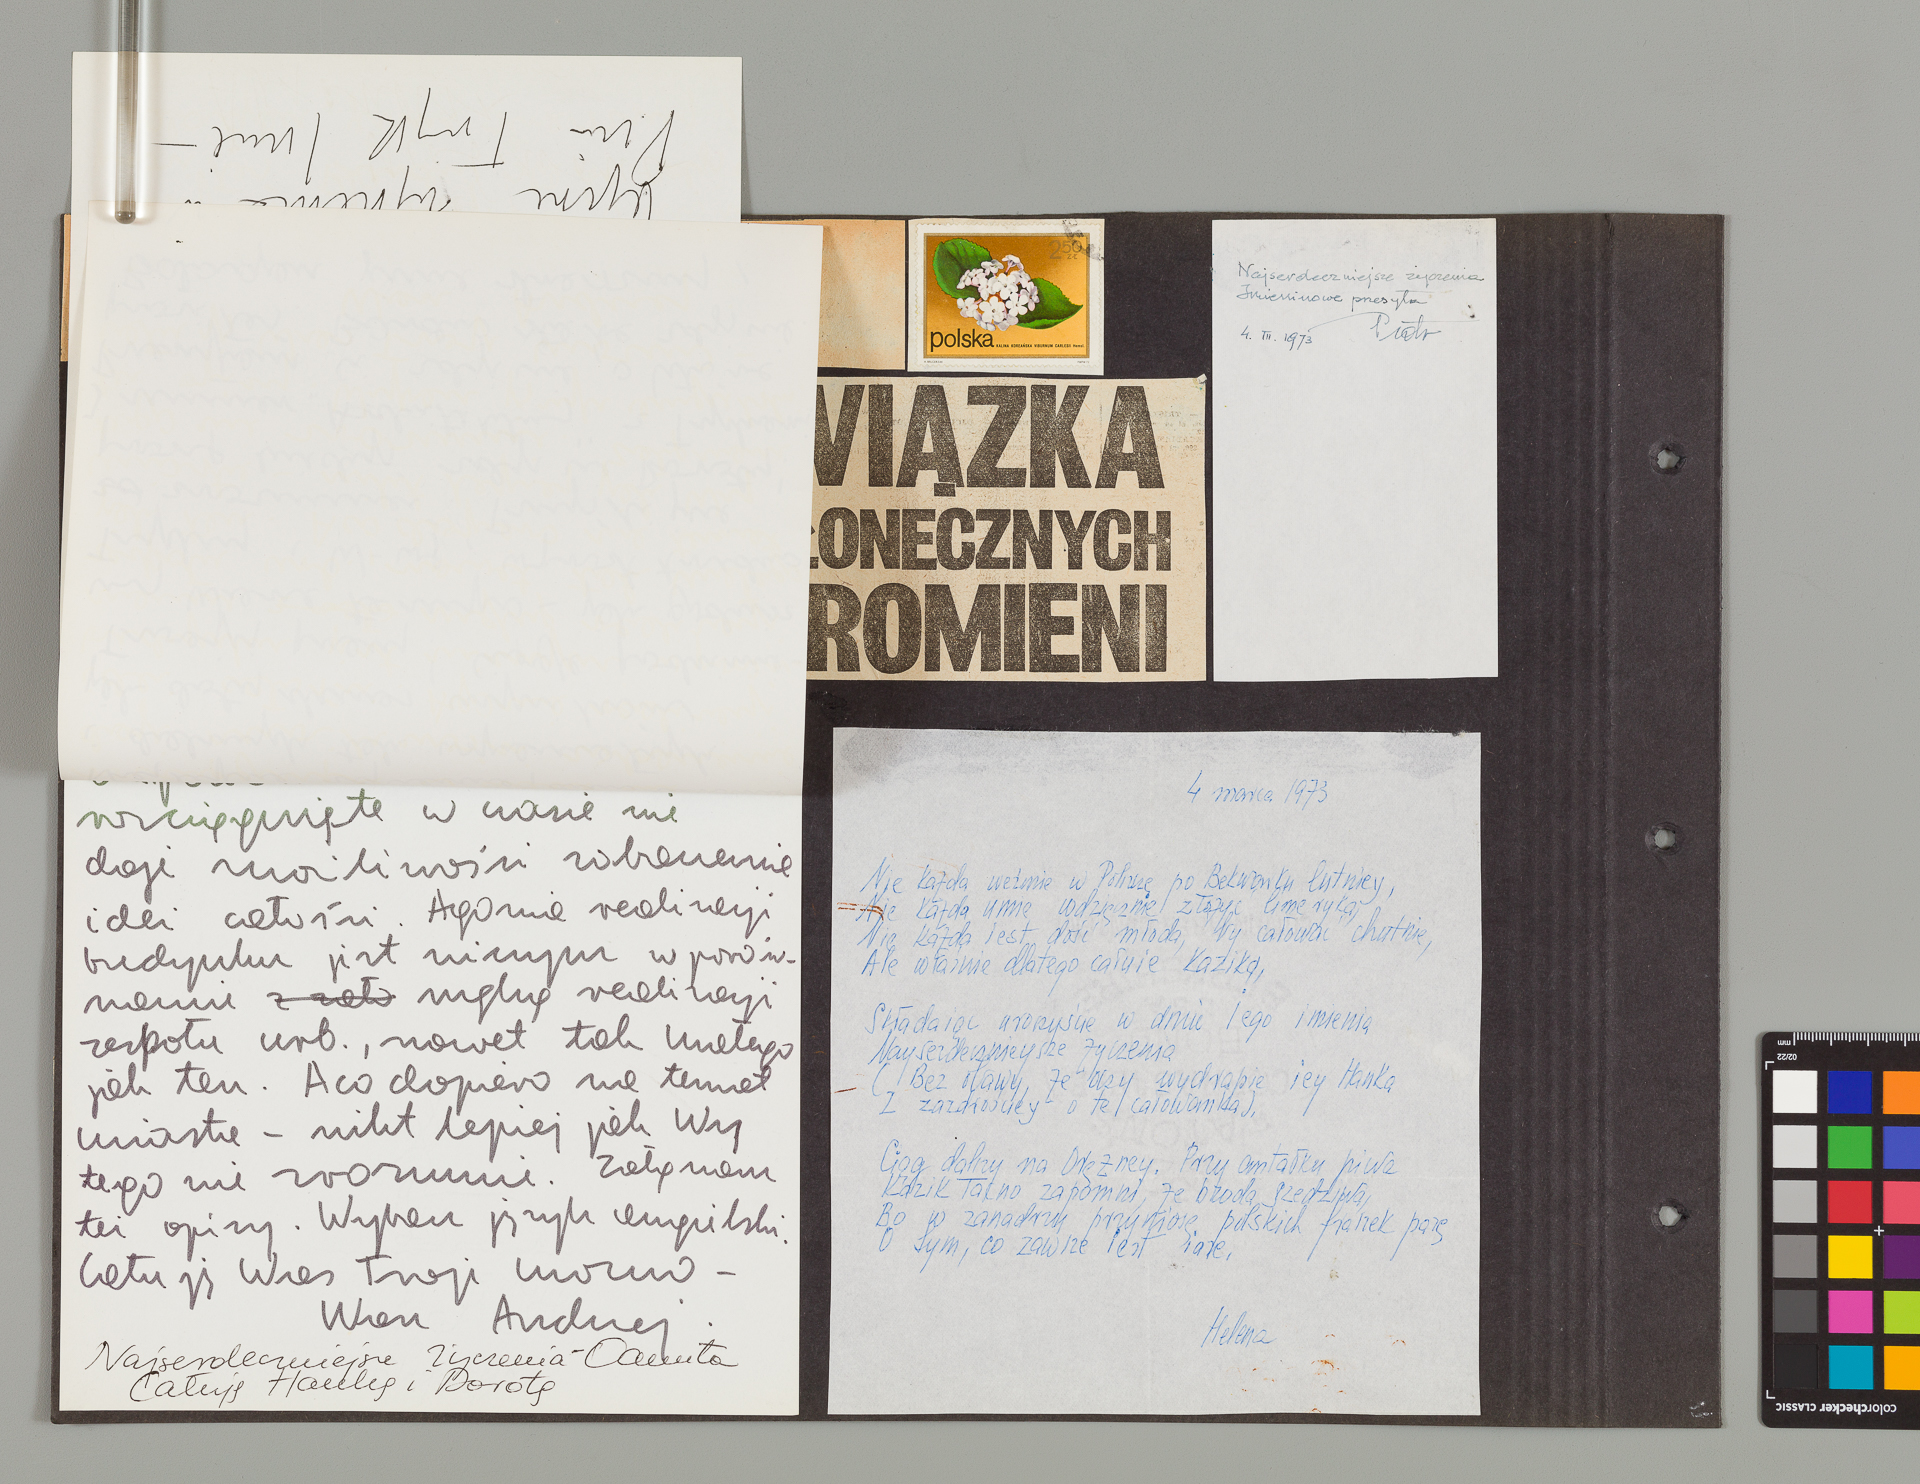 250
zł
polska
KALINA KOREAŃSKA VIBURNUM CARLESII Hemsl.
WIĄZKA
ŁONECZNYCH
ROMIENI
Najserdeczniejsze życzenia
Imieninowe przesyła
4. III. 1973 Piotr
rozciągnięte w czasie nie
daje możliwości zobaczenia
idei całości. Agonia realizacji
budynku jest niczym w porów-
naniu z mękę realizacji
zespołu urb., nawet tak małego
jak ten. A co dopiero na temat
miasta – nikt lepiej jak Wy
tego nie rozumie. Załączam
też opisy. Wybacz język angielski.
Całuję Was Twoje mocno –
Wasz Andrzej.
Najserdeczniejsze życzenia – Danuta
Całuję Hankę i Dorotę
4 marca 1973
Nie każda weźmie w Polszcze po Bekwarku lutniey,
Nie każda umie wdzięcznie złożyć limeryka,
Nie każda iest dość młoda, by całować chutnie,
Ale właśnie dlatego całuie Kazika,
Składaiąc uroczyście w dniu Iego imienia
Nayserdecznieysze życzenia
( Bez obawy, że oczy wydrapie iey Hanka
Z zazdrościey o te całowanka).
Ciąg dalszy na Orężney. Przy antałku piwa
Kazik łacno zapomni, że broda szedziwa,
Bo w zanadrzu przyniosę polskich fraszek parę
O tym, co zawsze iest iare.
Helena
mm
02/22
colorchecker CLASSIC